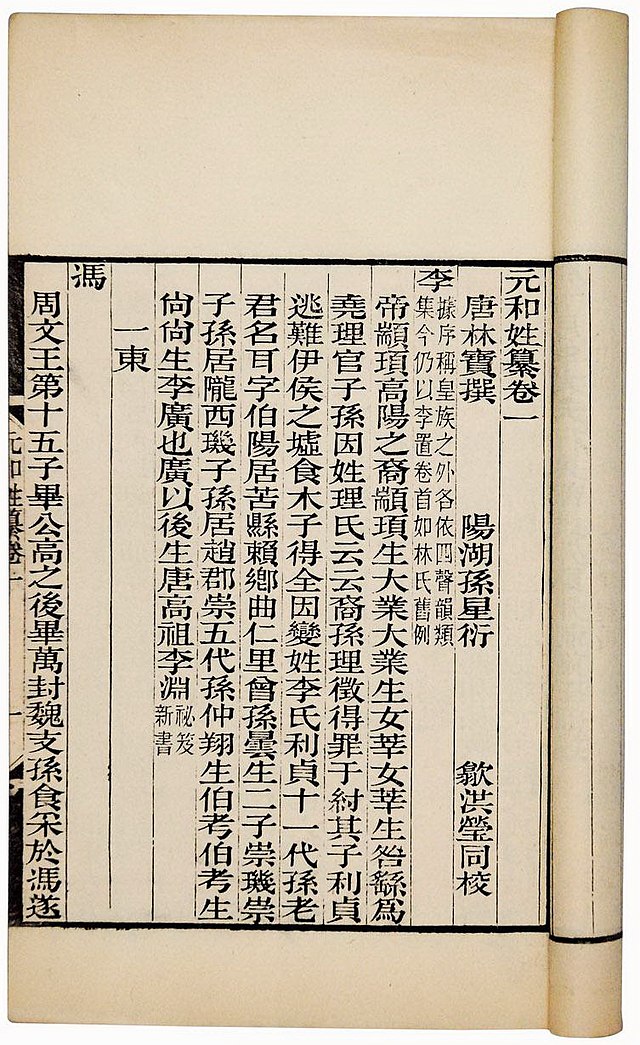 元和姓纂卷一
唐林寶撰 陽湖孫星衍 歙洪瑩同校
李 據序稱皇族之外各依四聲韻類
集今仍以李置卷首如林氏舊例
帝顓頊高陽之裔顓頊生大業大業生女莘女莘生咎繇爲
堯理官子孫因姓理氏云云裔孫理徵得罪于紂其子利貞
逃難伊侯之墟食木子得全因變姓李氏利貞十一代孫老
君名耳字伯陽居苦縣賴鄉曲仁里曾孫曇生二子崇璣崇
子孫居隴西璣子孫居趙郡崇五代孫仲翔生伯考伯考生
尙尙生李廣也廣以後生唐高祖李淵 祕笈
新書
一東
馮
周文王第十五子畢公高之後畢萬封魏支孫食采於馮遂
元和姓纂卷一
一